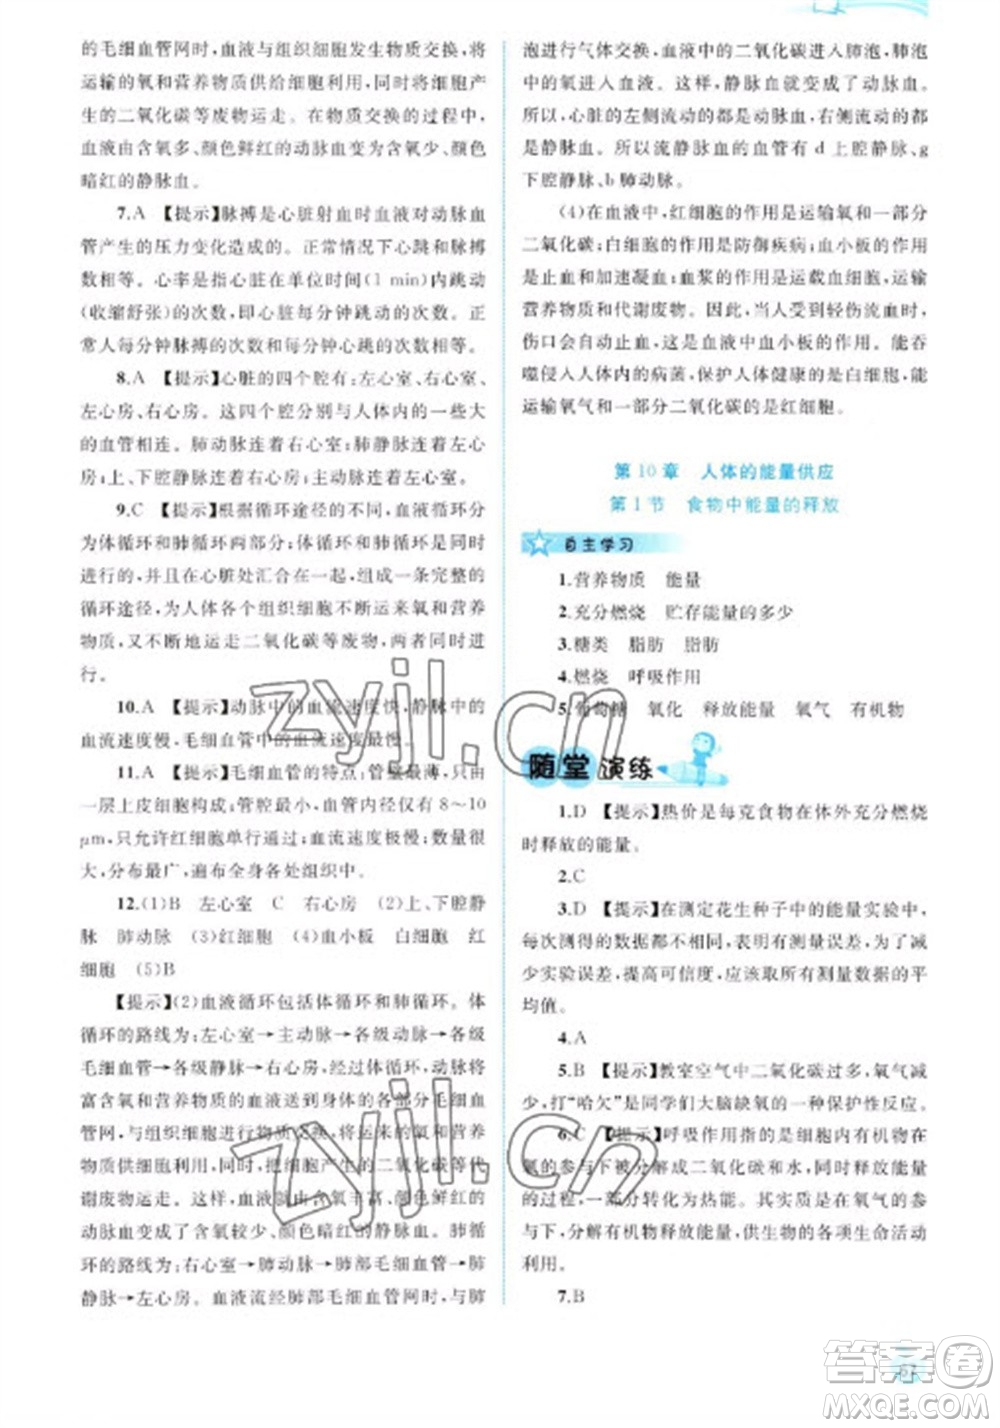 的毛细血管网时,血液与组织细胞发生物质交换,将
运输的氧和营养物质供给细胞利用,同时将细胞产
生的二氧化碳等废物运走。在物质交换的过程中,
血液由含氧多、颜色鲜红的动脉血变为含氧少、颜色
暗红的静脉血。
7.A 【提示】脉搏是心脏射血时血液对动脉血
管产生的压力变化造成的。正常情况下心跳和脉搏
次数相等。心率是指心脏在单位时间(1 min)内跳动
(收缩舒张)的次数,即心脏每分钟跳动的次数。正
常人每分钟脉搏的次数和每分钟心跳的次数相等。
8.A 【提示】心脏的四个腔有:左心室、右心室、
左心房、右心房。这四个腔分别与人体内的一些大
的血管相连。肺动脉连着右心室;肺静脉连着左心
房;上、下腔静脉连着右心房;主动脉连着左心室。
9.C 【提示】根据循环途径的不同,血液循环可
分为体循环和肺循环两部分;体循环和肺循环同时
进行的,在心脏处汇合在一起,组成一条完整的
循环途径,为人体各个组织细胞不断运来氧和营养
物质,又不断地运走二氧化碳等废物,两者同时进
行。
10.A 【提示】动脉中的血流速度快,静脉中的
血流速度慢,毛细血管中的血流速度最慢。
11.A 【提示】毛细血管的特点:管壁最薄,只由
一层上皮细胞构成;管腔最小,只有 8～10
μm,只允许红细胞单行通过;血流速度极慢;数量很
大,分布最广,遍布全身各处组织中。
12.(1)B 左心室 C 右心房 (2)上、下腔静
脉 肺动脉 (3)红细胞 (4)血小板 白细胞 红
细胞 (5)B
【提示】(2)血液循环包括体循环和肺循环。体
循环的路线为:左心室→主动脉→各级动脉→各级
毛细血管→各级静脉→右心房,体循环中,动脉将
富含氧和营养物质的血液送到身体的各部分毛细血
管网,与组织细胞进行物质交换,将运输的氧和营养物质供给
细胞利用,同时,把细胞产生的二氧化碳等代
谢废物运走。这样,血液由含氧丰富、颜色鲜红的
动脉血变成了含氧较少、颜色暗红的静脉血。肺循
环的路线为:右心室→肺动脉→肺部毛细血管→肺
静脉→左心房。血液流经肺部毛细血管网时,与肺
泡进行气体交换,血液中的二氧化碳进入肺泡,肺泡
中的氧进入血液。这样,静脉血就变成了动脉血。
所以,心脏的左侧流动的都是动脉血,右侧流动的都
是静脉血。所以流静脉血的血管有 d 上腔静脉、g
下腔静脉、b 肺动脉。
(4)在血液中,红细胞的作用是运输氧和一部分
二氧化碳;白细胞的作用是防御疾病;血小板的作用
是止血和加速凝血;血浆的作用是运载血细胞,运输
营养物质和代谢废物。因此,当人受轻伤流血时,
伤口会自动止血,这是血液中血小板的作用。能吞
噬侵入人体内的病菌,保护人体健康的是白细胞,能
运输氧气和一部分二氧化碳的是红细胞。
第 10 章 人体的能量供应
第 1 节 食物中能量的释放
自主学习
1.营养物质 能量
2.充分燃烧 贮存能量的多少
3.糖类 脂肪 脂肪
4.燃烧 呼吸作用
5.葡萄糖 氧化 释放能量 氧气 有机物
随堂演练
1.D 【提示】热价是每克食物在体外充分燃烧
时释放的能量。
2.C
3.D 【提示】在测定花生种子中的能量实验中,
每次测得的数据都不相同,表明有测量误差,为了减
少实验误差,提高可信度,应该取所有测量数据的平
均值。
4.A
5.B 【提示】教室空气中二氧化碳过多,氧气减
少,打“哈欠”是同学们大脑缺氧的一种保护性反应。
6.C 【提示】呼吸作用指的是细胞内有机物在
氧的参与下被分解成二氧化碳和水,同时释放能量
的过程,一部分转化为热能。其实质是在氧气的参
与下,分解有机物释放能量,供生物的各项生命活动
利用。
7.B
zyjl.cn
zyjl.cn
答案圈
MXQE.COM